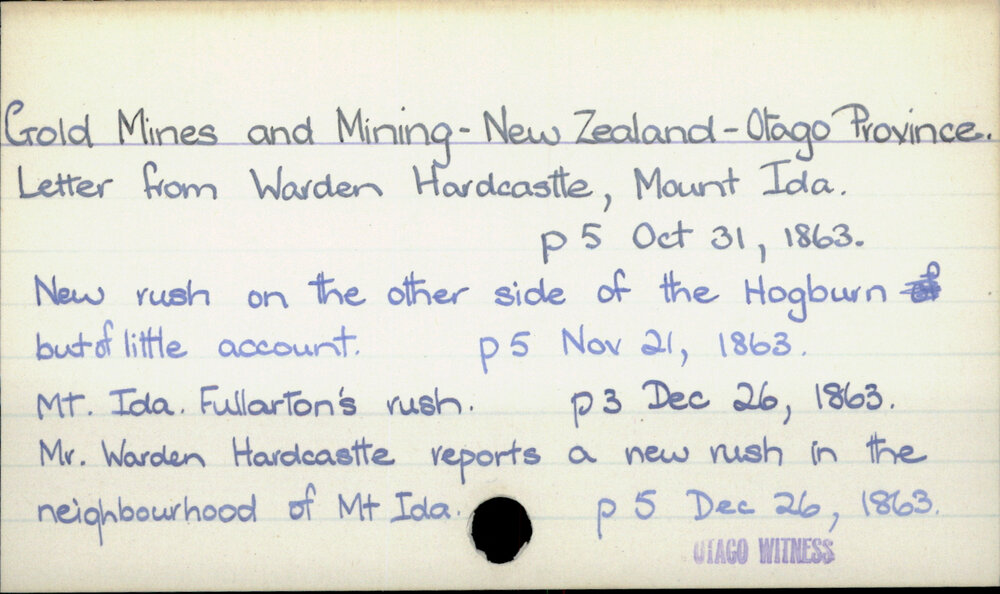 Gold Mines and Mining - New Zealand - Otago Province.
Letter from Warden Hardcastle, Mount Ida.
p 5 Oct 31, 1863.
New rush on the other side of the Hogburn
but of little account. p 5 Nov 21, 1863.
Mt. Ida. Fullarton's rush. p 3 Dec 26, 1863.
Mr. Warden Hardcastle reports a new rush in the
neighbourhood of Mt Ida. p 5 Dec 26, 1863.
OTAGO WITNESS